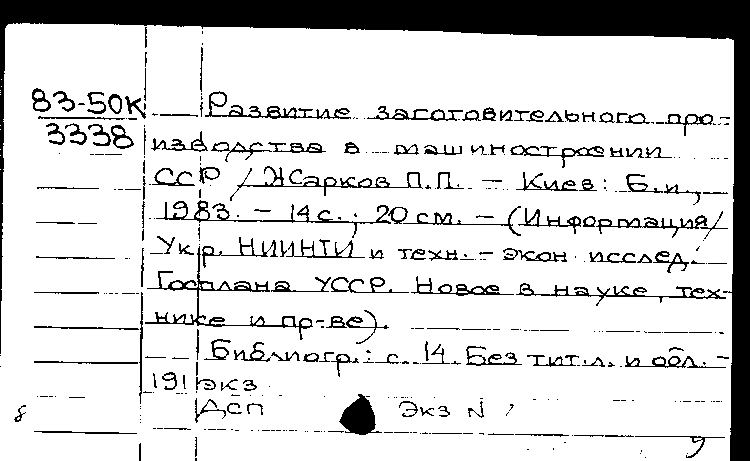 83-50К
3338
Развитие заготовительного про-
изводства в машиностроении
ССР / Жарков П.П. – Киев: Б.и.,
1983. – 14 с.; 20 см. – (Информация/
Укр. НИИНТИ и техн.-экон. исслед.
Госплана УССР. Новое в науке, тех-
нике и пр-ве).
Библиогр.: с. 14. Без тит.л. и обл. –
191 экз
ДСП Экз N